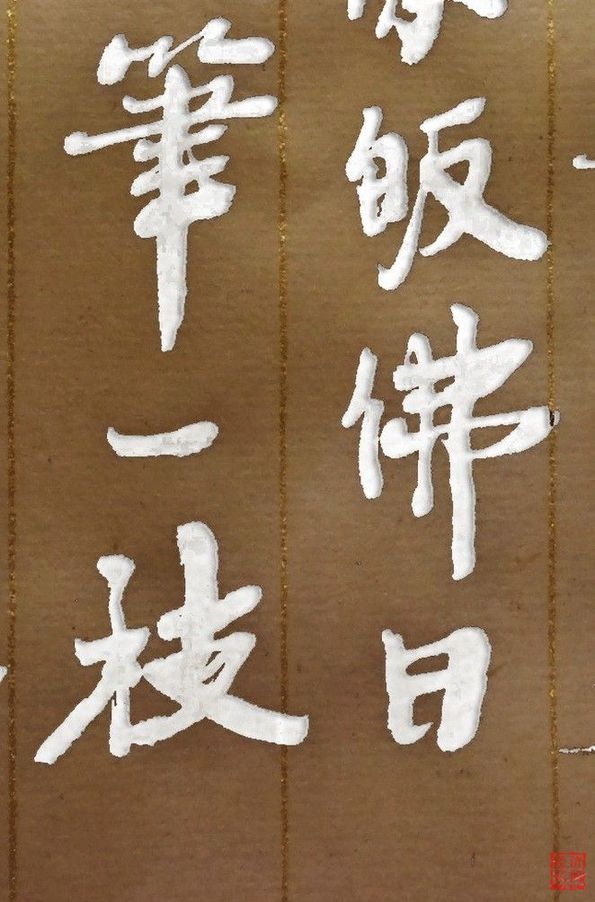 皈佛日
筆一枝